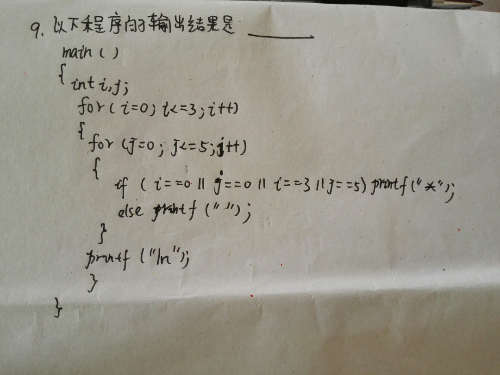 9. 以下程序的输出结果是 ______
main()
{ int i,j;
for(i=0; i<=3; i++)
{ for(j=0; j<=5; j++)
{
if(i==0 || j==0 || i==3 || j==5) printf("*");
else printf(" ");
}
printf("\n");
}
}